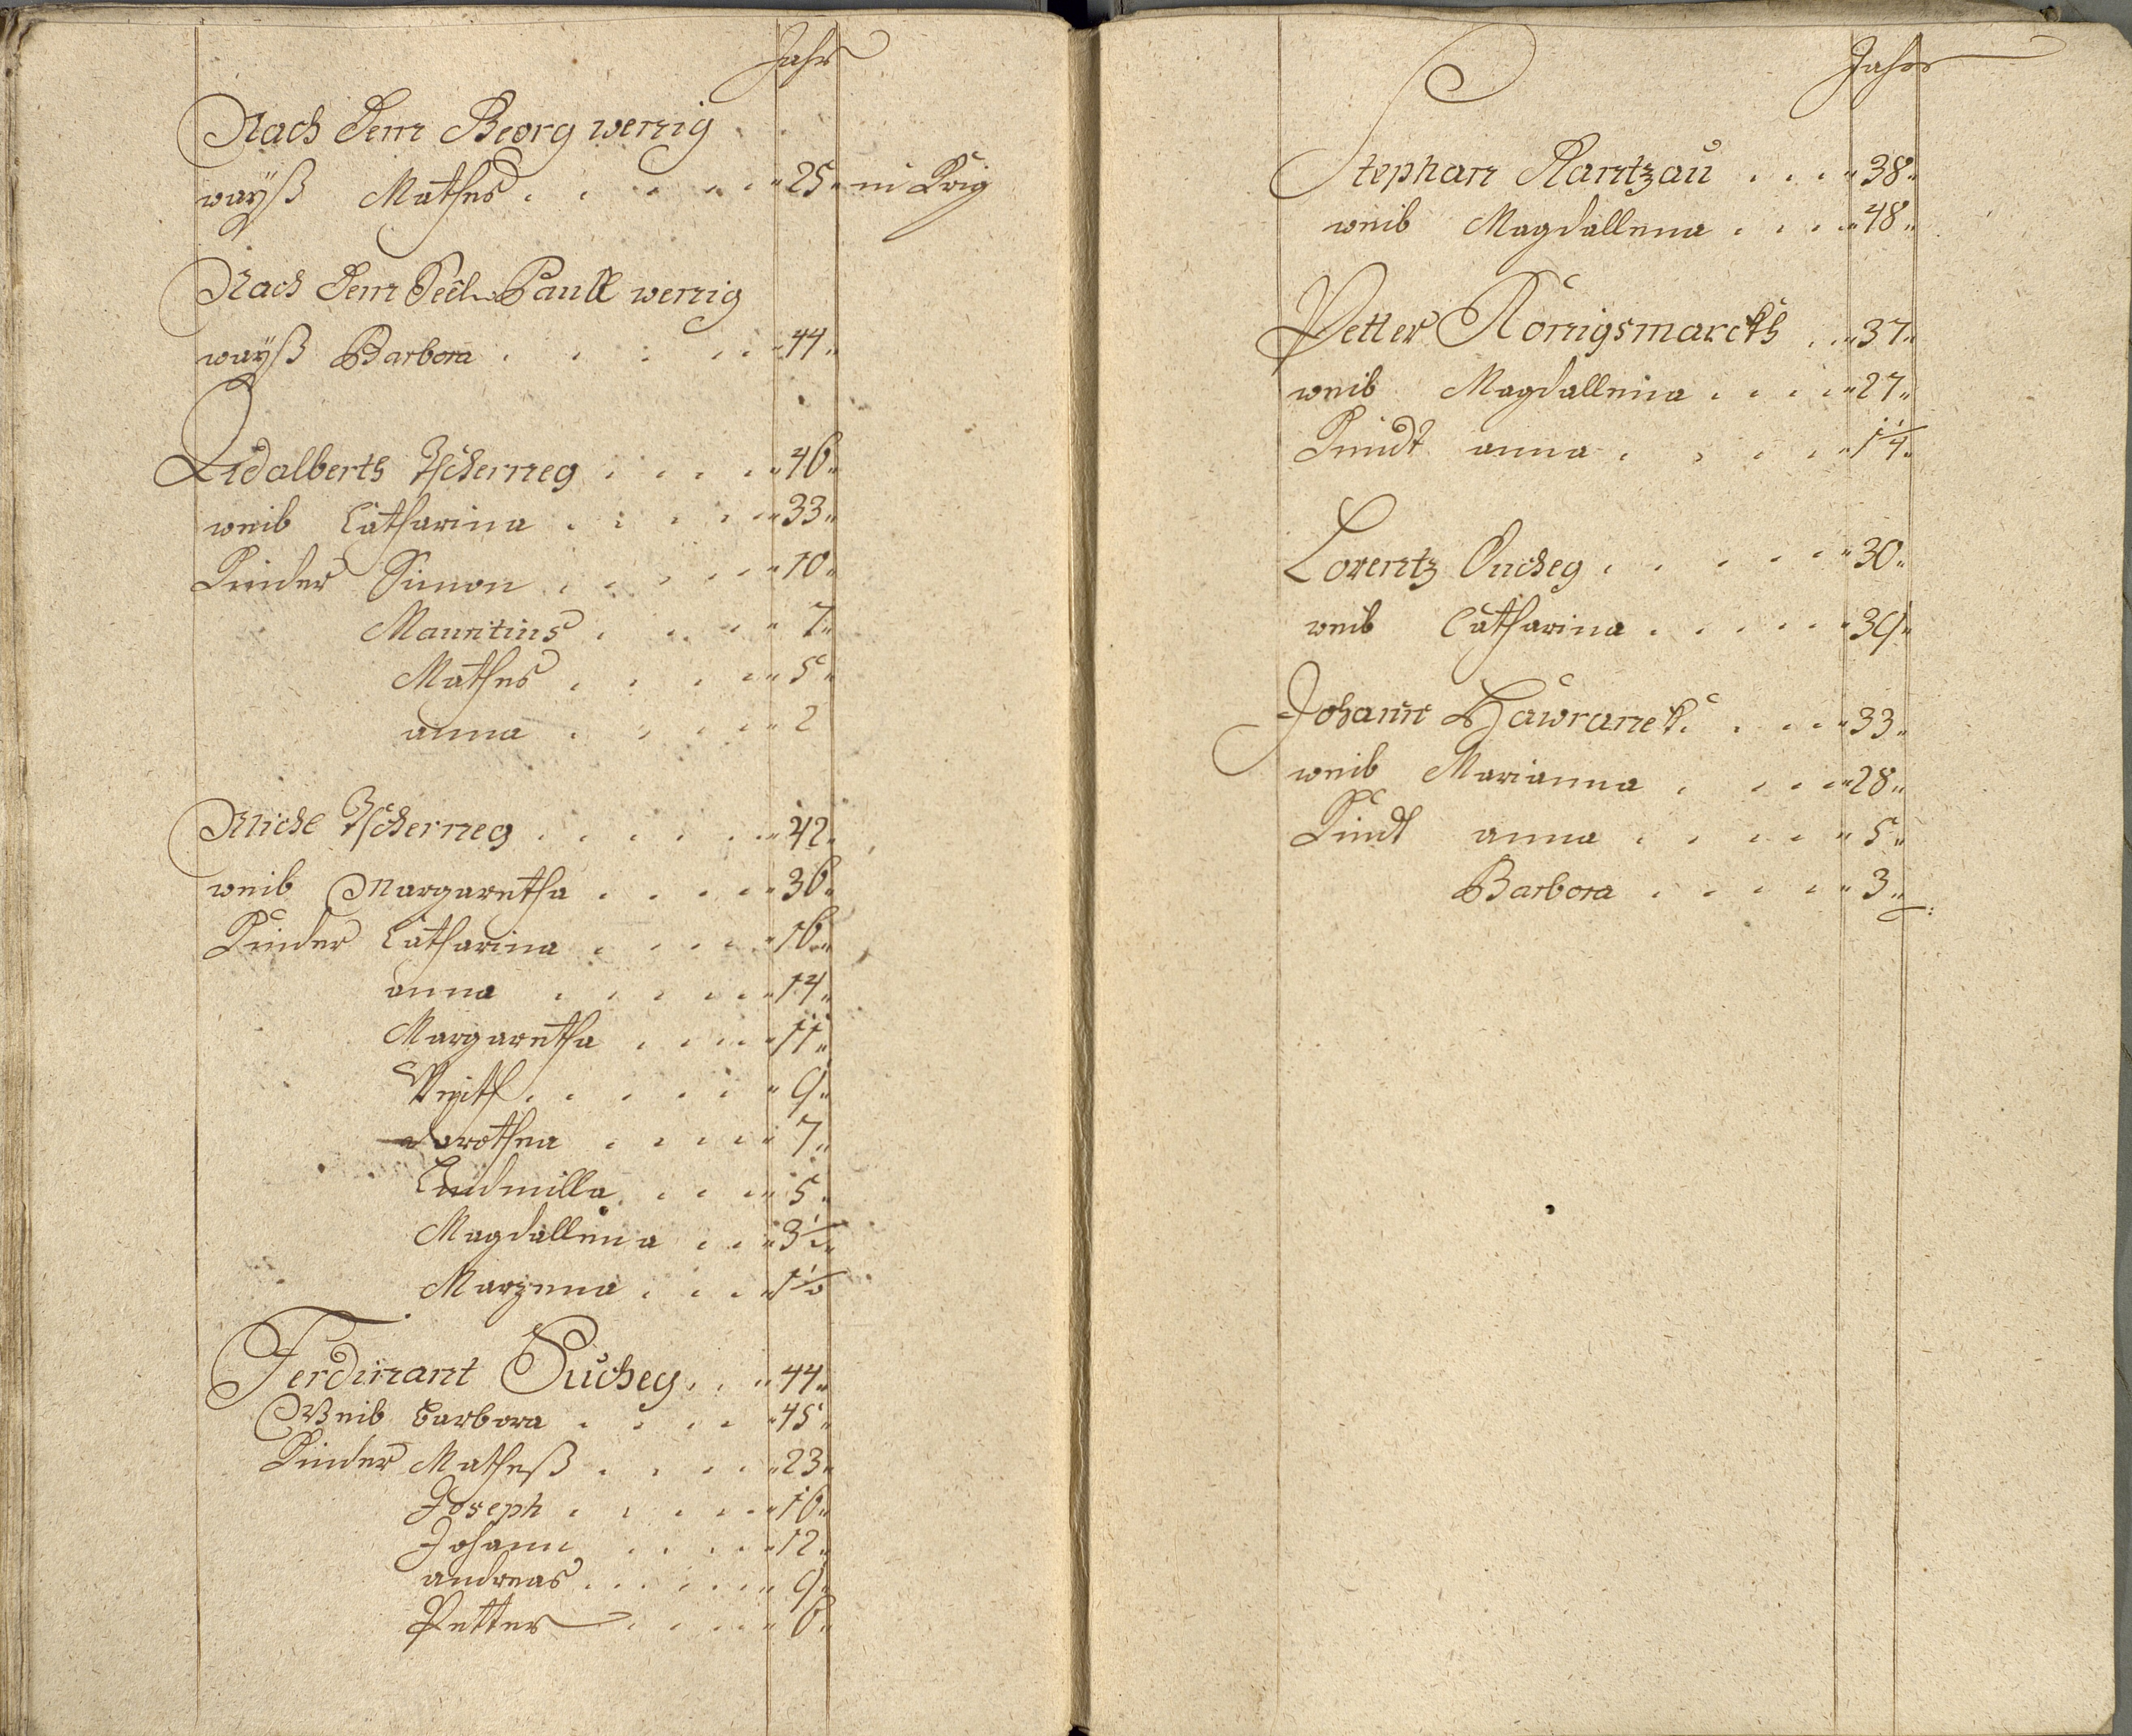 Jahr
Nach dem Georg wenig
waÿß Mathes . . . . . . 25 in Krig
Nach dem Seel. Paull wenig
waÿß Barbora . . . . . 44
Adalberth Tscherneg . . . . 46
weib Catharina . . . . . 33
Kinder Simon . . . . . 10
Mauritius . . . . 7
Mathes . . . . 5
anna . . . . 2
Michl Tscherneg . . . . . 42
weib Margaretha . . . . 36
Kinder Catharina . . . . 16
anna . . . . . 14
Margaretha . . . . 11
Veith . . . . . 9
dorothea . . . . 7
Ludmilla . . . 5
Magdallena . . 3 1/2
Marzena . . . 1 1/2
Ferdinant Sucheÿ . . 44
Weib barbora . . . . 45
Kinder Matheß . . . . 23
Joseph . . . . . 16
Johann . . . . 12
andreas . . . . . . 9
Petter . . . . 6
Jahr
Stephan Rantzau . . . 38
weib Magdallena . . . . 48
Petter Königsmarckh . . 37
weib Magdallena . . . . 27
Kindt anna . . . . 1 1/4
Lorentz Sucheÿ . . . . . 30
weib Catharina . . . . . 39
Johann Hawranek . . . . 33
weib Marianna . . . . 28
Kindt anna . . . . 5
Barbora . . . . 3